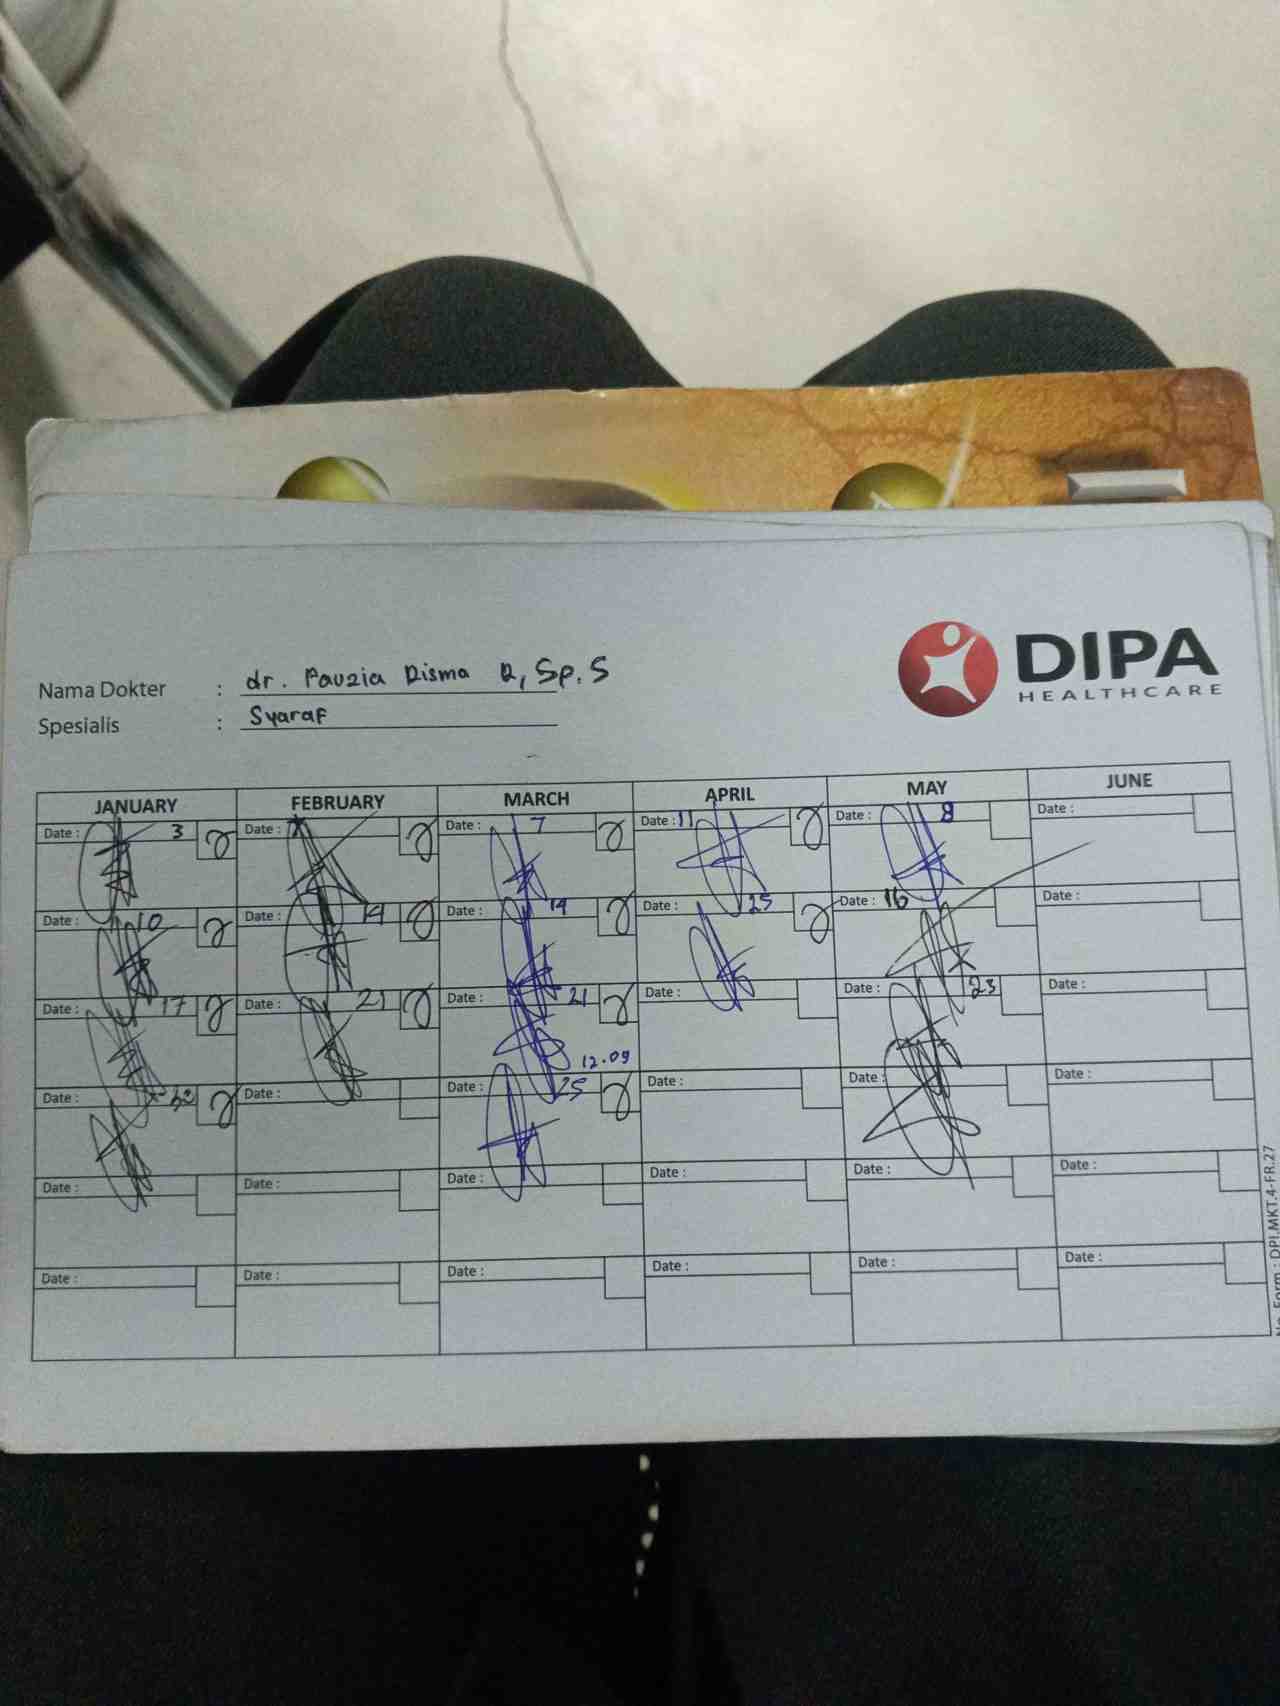 DIPA
HEALTHCARE
Nama Dokter : dr. Pauzia Risma R, Sp. S
Spesialis : Syaraf
JANUARY FEBRUARY MARCH APRIL MAY JUNE
Date : 3 Date : Date : 7 Date : 11 Date : 8 Date :
Date : 10 Date : 14 Date : 14 Date : 25 Date : 16 Date :
Date : 17 Date : 21 Date : 21 Date : Date : 23 Date :
12.09
Date : Date : Date : 25 Date : Date : Date :
Date : Date : Date : Date : Date : Date :
Date : Date : Date : Date : Date : Date :
No. Form : DPI.MKT.4-FR.27